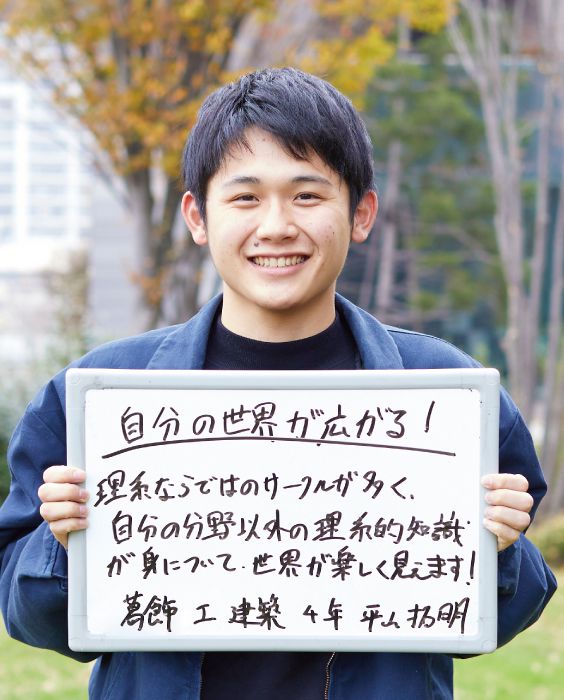 自分の世界が広がる！
理系ならではのサークルが多く、
自分の分野以外の理系的知識
が身について、世界が楽しく見えます！
葛飾 工 建築 4年 平山 拓明